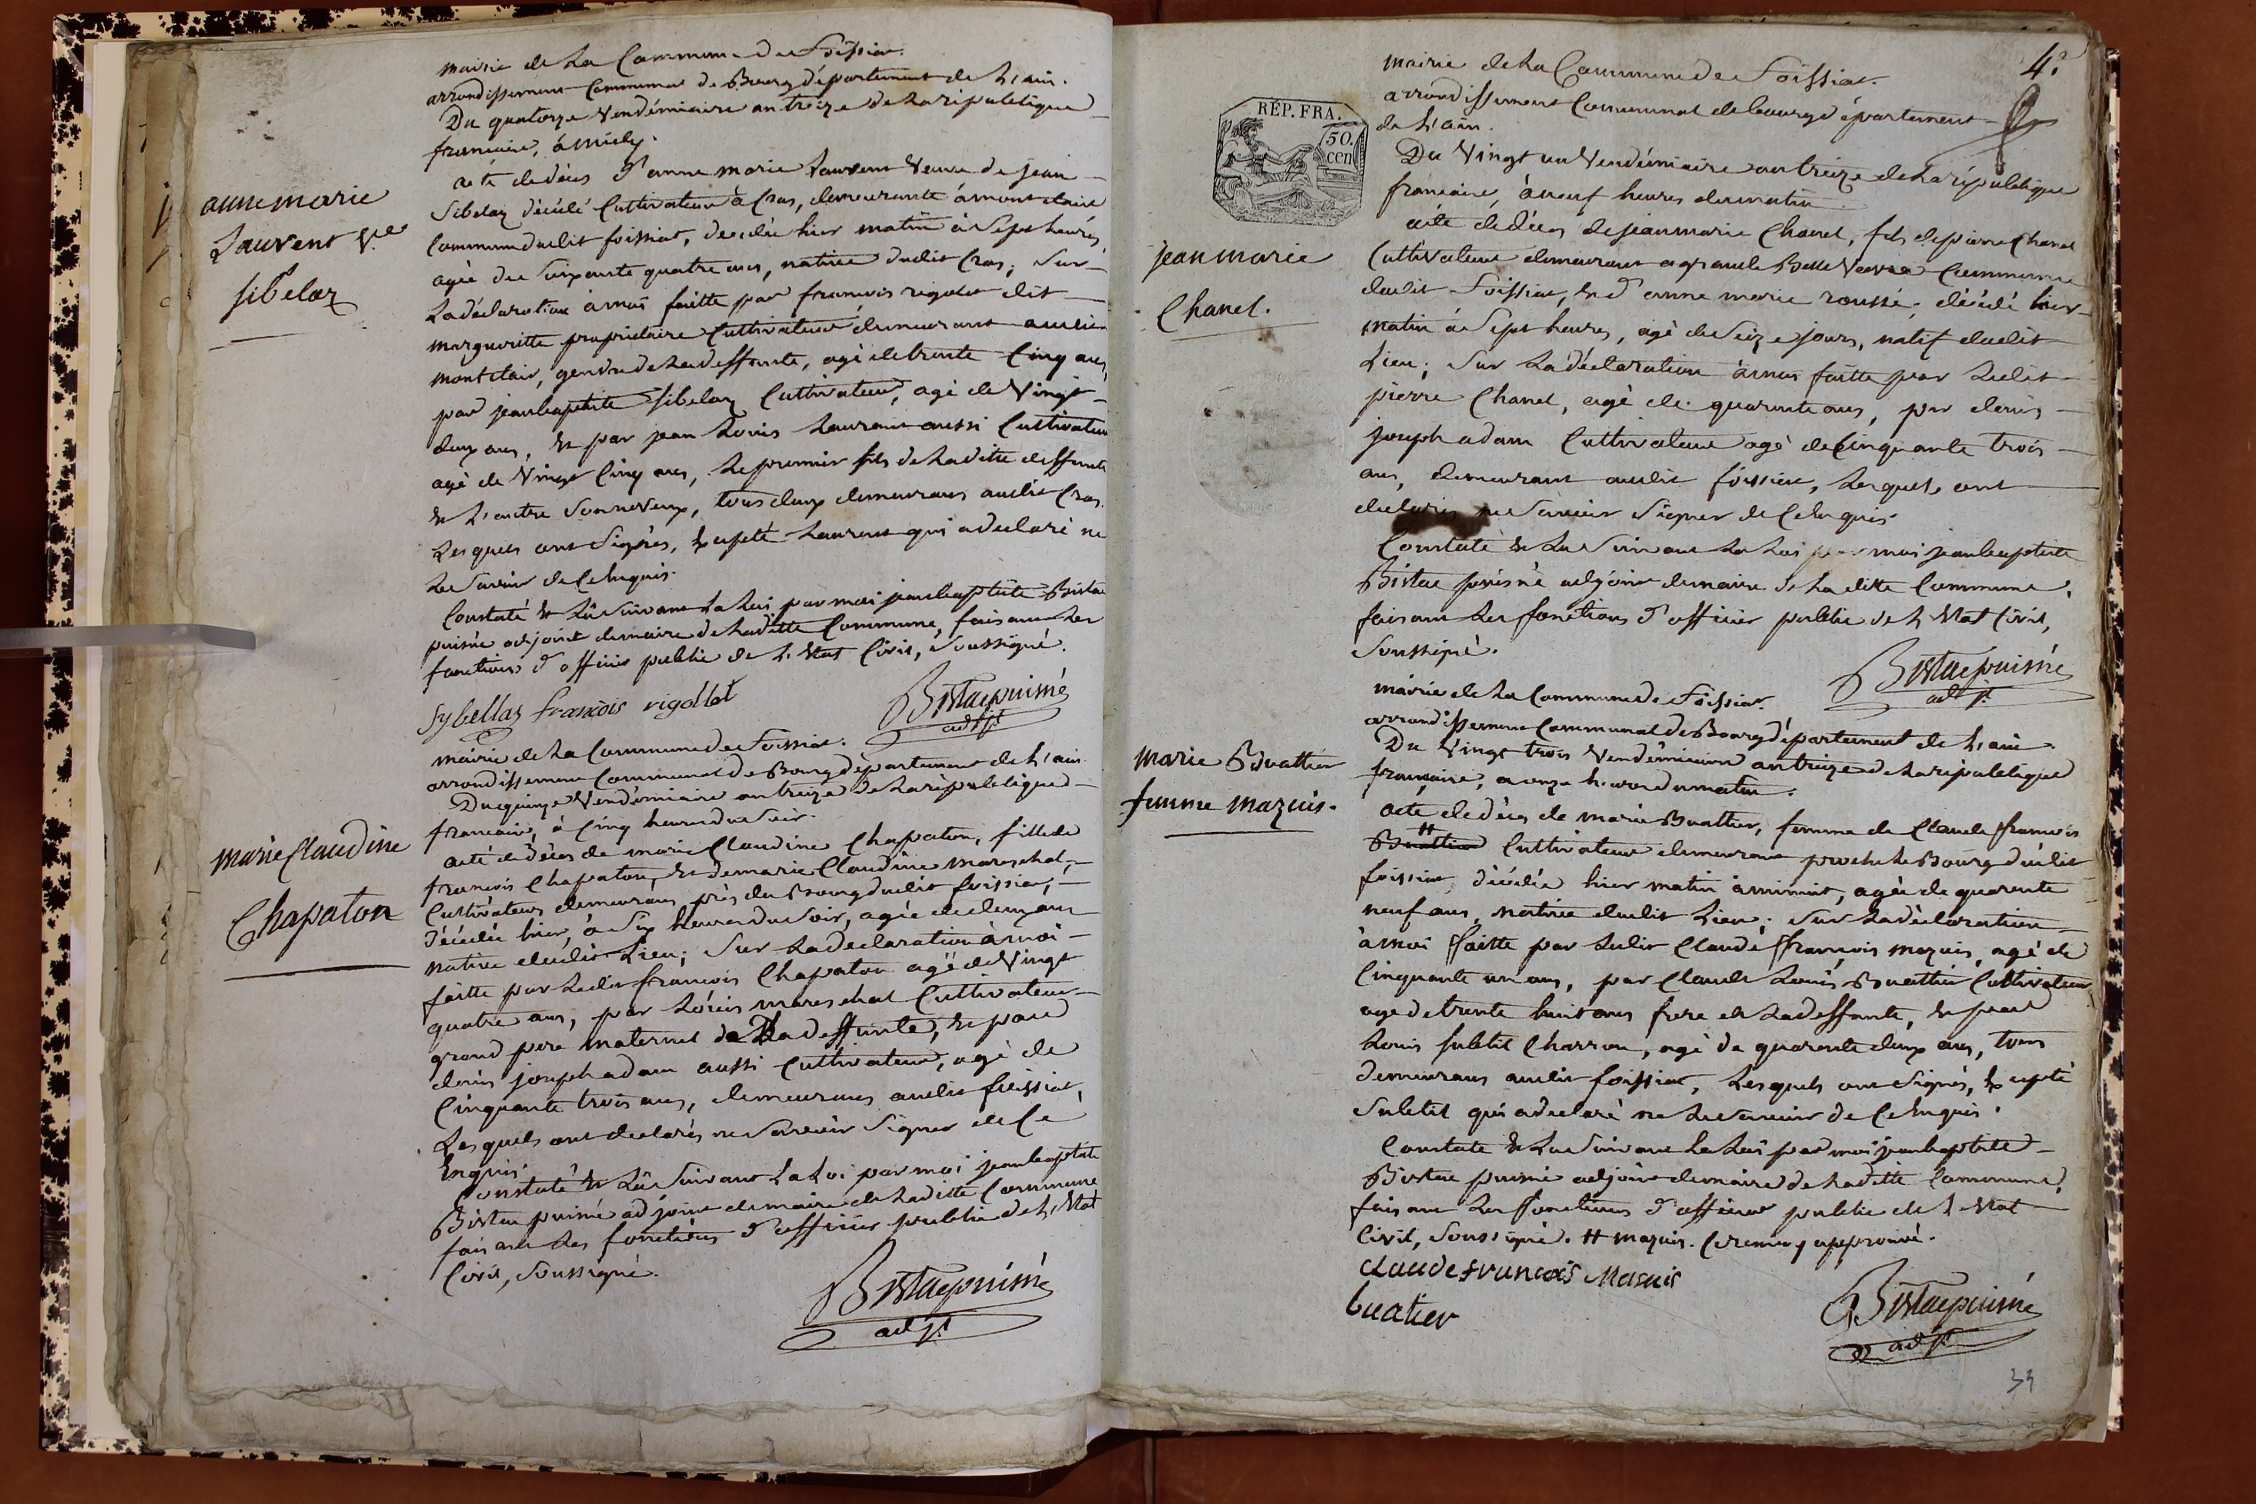 mairie de La Commune de Foissiat.
arrondissement Communal de Bourg département de L'ain.
Du quatorze Vendémiaire an treize de La république
francaise, à midy.
acte de décès d'anne marie Laurent Veuve de jean
Sibelaz décédé Cultivateur à Cras, demeurante à mont clair
Commune dudit foissiat, décédée hier matin à Sept heures,
agée de Soixante quatre ans, native dudit Cras; Sur
La déclaration à moi faitte par francois rigolet dit
margueritte propriétaire Cultivateur demeurant audit
mont clair, gendre de La deffunte, agé de trente Cinq ans,
par jean baptiste Sibelaz Cultivateur, agé de Vingt
deux ans, & par jean Louis Laurent aussi Cultivateur
agé de Vingt Cinq ans, Le premier fils de La ditte deffunte
& L'autre Son neveux, tous deux demeurans audit Cras.
Les quels ont Signés, Excepté Laurent qui a déclaré ne
Le Savoir de Ce Enquis.
Constaté & Lû Suivant La Loi par moi jean baptiste Bistac
puisné adjoint de maire de La ditte Commune, faisant Les
fonctions d'officier public de L'Etat Civil, Soussigné.
Sybellaz françois rigollet
Bistac puisné
adjt
anne marie
Laurent Ve
Sibelaz
mairie de La Commune de Foissiat.
arrondissement Communal de Bourg département de L'ain
Du quinze Vendémiaire an treize de La république
francaise, à Cinq heures du Soir.
acte de décès de marie Claudine Chapaton, fille de
francois Chapaton, & de marie Claudine mareschal,
Cultivateurs demeurans près du Bourg dudit foissiat,
décédée hier, à Six heures du Soir, agée de deux ans
native dudit Lieu; Sur La déclaration à moi
faitte par Ledit francois Chapaton agé de Vingt
quatre ans, par Louis mareschal Cultivateur
grand pere maternel de La deffunte, & par
denis joseph adam aussi Cultivateur, agé de
Cinquante trois ans, demeurans audit foissiat,
Les quels ont declarés ne Savoir Signer de Ce
Enquis.
Constaté & Lû Suivant La Loi par moi jean baptiste
Bistac puisné adjoint de maire de La ditte Commune
faisant Les fonctions d'officier public de L'Etat
Civil, Soussigné.
Bistac puisné
adjt
marie Claudine
Chapaton
4.
RÉP. FRA.
50.
cen
mairie de La Commune de Foissiat.
arrondissement Communal de bourg département
de L'ain.
Du Vingt un Vendémiaire an treize de La république
francaise, à neuf heures du matin
acte de décès de jean marie Chanel, fils de pierre Chanel
Cultivateur demeurant a grande Commune
dudit Foissiat, & d'anne marie rousset, décédé hier
matin à Sept heures, agé de Seize jours, natif dudit
Lieu; Sur La déclaration à moi faitte par Ledit
pierre Chanel, agé de quarante ans, par denis
joseph adam Cultivateur agé de Cinquante trois
ans, demeurant audit foissiat, Lesquels ont
declarés ne Savoir Signer de Ce Enquis.
Constaté & Lu Suivant La Loi par moi jean baptiste
Bistac puisné adjoint de maire de La ditte Commune,
faisant Les fonctions d'officier public de L'Etat Civil,
Soussigné.
Bistac puisné
adjt
jean marie
Chanel.
mairie de La Commune de Foissiat.
arrondissement Communal de Bourg département de L'ain.
Du Vingt trois Vendémiaire an treize de La république
francaise, a onze heures du matin.
acte de décès de marie Buathier, femme de Claude francois
# Buathier Cultivateur demeurant proche Le Bourg dudit
foissiat, décédée hier matin à minuit, agée de quarente
neuf ans, native dudit Lieu; Sur La déclaration
à moi faitte par Ledit Claude francois mazuis, agé de
Cinquante un ans, par Claude Louis Buathier Cultivateur
age de trente huit ans frere de La deffunte, & par
Louis Subtil Charron, agé de quarente deux ans, tous
demeurans audit foissiat, Lesquels ont Signés, Excepté
Subtil qui a déclaré ne Le Savoir de Ce Enquis.
Constaté & Lu Suivant La Loi par moi jean baptiste
Bistac puisné adjoint de maire de La ditte Commune,
faisant Les fonctions d'officier public de L'Etat
Civil, Soussigné. # mazuis. Ce renvoy approuvé.
claude francois Masuis
buatier
Bistac puisné
adjt
marie Buathier
femme mazuis.
39